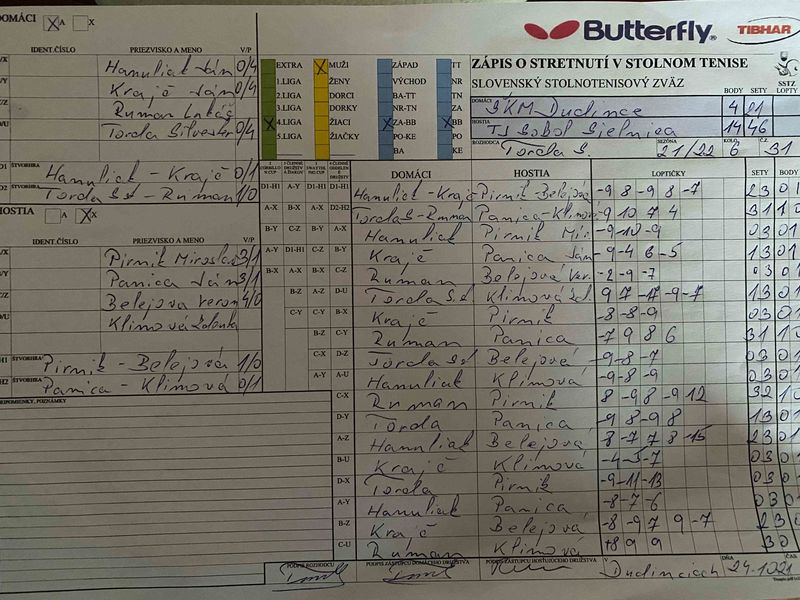 DOMÁCI X A X
Butterfly
TIBHAR
IDENT.ČÍSLO PRIEZVISKO A MENO V/P
Hanuliak Ján 0/4
Krajč Ján 0/4
Ruman
Torda Silvester 0/4
ŠTVORHRA Hanuliak - Krajč 0/1
ŠTVORHRA Torda Sd - Ruman 1/0
HOSTIA A X X
IDENT.ČÍSLO PRIEZVISKO A MENO V/P
Pirník Miroslav 3/1
Panica Ján 3/1
Belejová Veron 4/0
Klimová
ŠTVORHRA Pirník - Belejová 1/0
ŠTVORHRA Panica - Klimová 0/1
PRIPOMIENKY, POZNÁMKY
EXTRA X MUŽI ZÁPAD TT
1.LIGA ŽENY VÝCHOD NR
2.LIGA DORCI BA-TT TN
3.LIGA DORKY NR-TN ZA
X 4.LIGA ŽIACI X ZA-BB X BB
5.LIGA ŽIAČKY PO-KE PO
BA KE
ZÁPIS O STRETNUTÍ V STOLNOM TENISE
SLOVENSKÝ STOLNOTENISOVÝ ZVÄZ
SSTZ
BODY SETY LOPTY
DOMÁCI ŠKM Dudince 4 21
HOSTIA TJ Sokol Sielnica 14 46
ROZHODCA Torda S. SEZÓNA 21/22 KOLO 6 Č.Z. 31
DOMÁCI HOSTIA LOPTIČKY SETY BODY
D1-H1 A-Y D1-H1 D1-H1 Hanuliak - Krajč Pirník - Belejová -9 8 -9 8 -7 2 3 0
A-X B-X A-X D2-H2 Torda S - Ruman Panica - Klimová -9 10 7 4 3 1 1 0
B-Y C-Z B-Y A-X Hanuliak Pirník Mir. -9 -10 -9 0 3 0 1
A-Y D1-H1 C-Z B-Y Krajč Panica Ján -9 -4 6 -5 1 3 0 1
B-X A-X B-X C-Z Ruman Belejová Ver. -2 -9 -7 0 3 0
B-Z A-Z D-U Torda Sd Klimová 9 7 -17 -9 -7 1 3 0
C-Y C-Y B-X Krajč Pirník -8 -8 -9 0 3 0 1
B-Z C-Y Ruman Panica -7 9 8 6 3 1 1
C-X D-Z Torda Sd Belejová -9 -8 -7 0 3 0 1
A-Y A-U Hanuliak Klimová -9 -8 -9 0 3 0 1
C-X Ruman Pirník 8 -9 8 -9 12 3 2 1
D-Y Torda Panica -9 8 -9 8 1 3 0 1
A-Z Hanuliak Belejová 8 -7 7 8 -15 2 3 0 1
B-U Krajč Klimová -4 -5 -7 0 3 0
D-X Torda Pirník -9 -11 -13 0 3 0
A-Y Hanuliak Panica -8 -7 -6 0 3 0
B-Z Krajč Belejová -8 -9 7 9 -7 2 3 0
C-U Ruman Klimová +8 9 9 3 0
PODPIS ROZHODCU PODPIS ZÁSTUPCU DOMÁCEHO DRUŽSTVA PODPIS ZÁSTUPCU HOSŤUJÚCEHO DRUŽSTVA V Dudinciach DŇA 24.10.21 ČAS